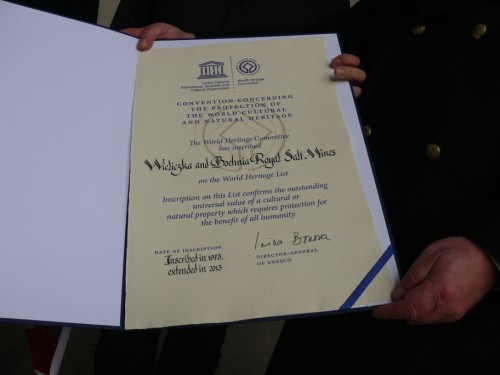 United Nations
Educational, Scientific and
Cultural Organization
World Heritage
Convention
CONVENTION CONCERNING
THE PROTECTION OF
THE WORLD CULTURAL
AND NATURAL HERITAGE
The World Heritage Committee
has inscribed
Wieliczka and Bochnia Royal Salt Mines
on the World Heritage List
Inscription on this List confirms the outstanding
universal value of a cultural or
natural property which requires protection for
the benefit of all humanity
DATE OF INSCRIPTION
Inscribed in 1978,
extended in 2013
Irina Bokova
DIRECTOR-GENERAL
OF UNESCO